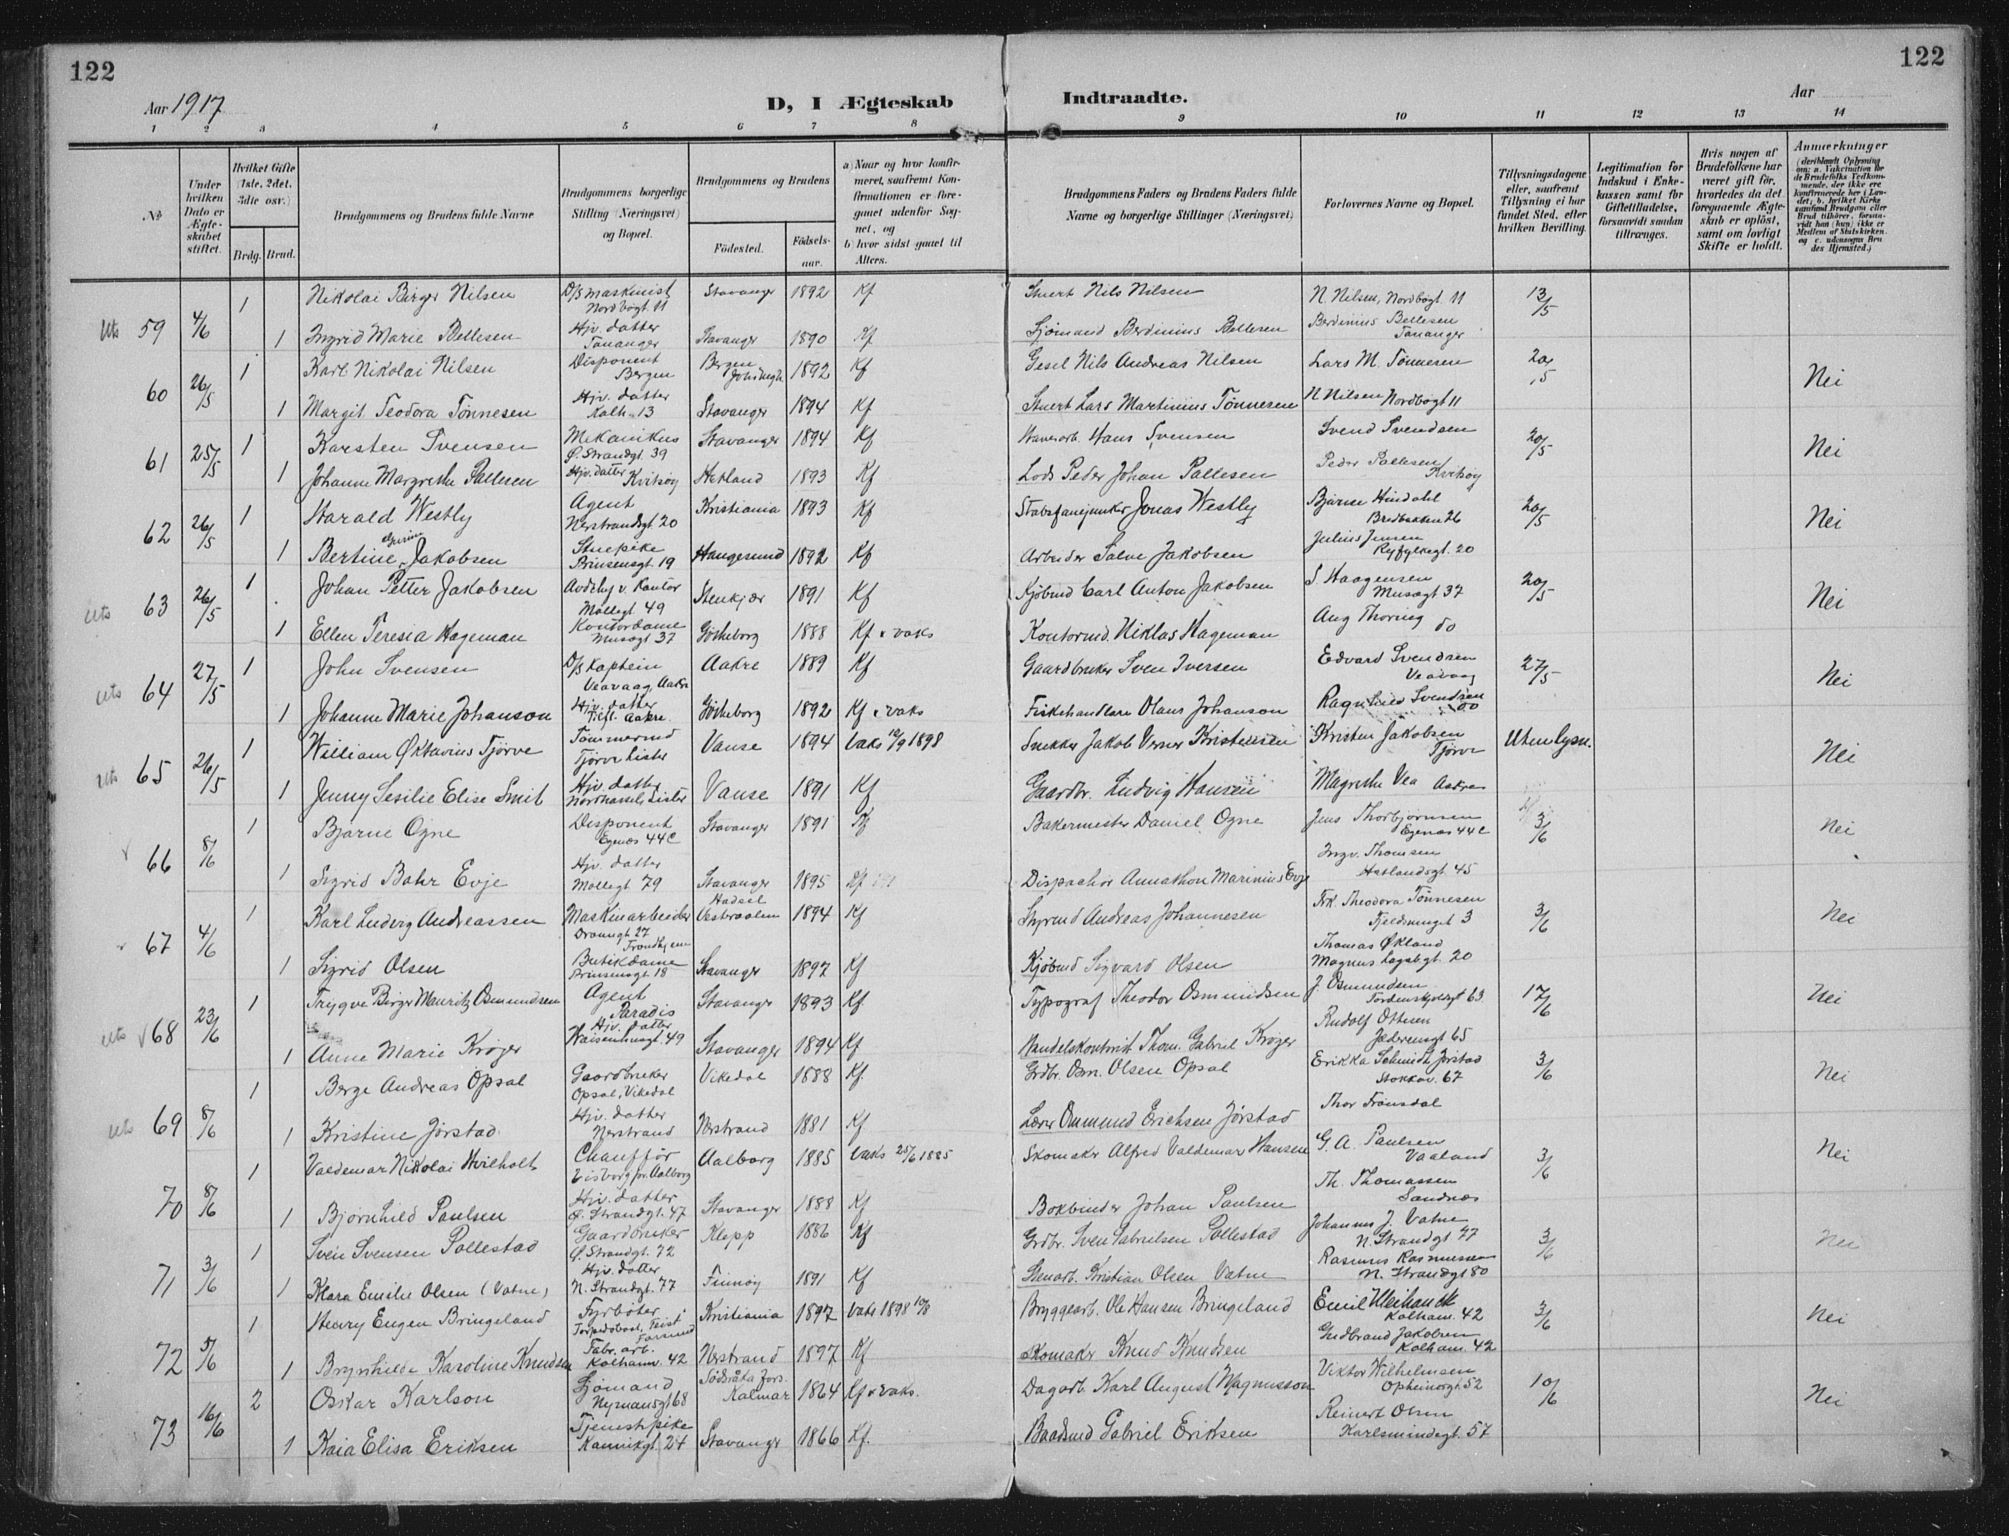 122
122
Aar 1917
D, I Ægteskab
Indtraadte.
Aar
1 2 3 4 5 6 7 8 9 10 11 12 13 14
No.
Under hvilken Dato er Ægteskabet stiftet.
Hvilket Gifte (1ste, 2det, 3die osv.)
Brdg. Brud.
Brudgommens og Brudens fulde Navne
Brudgommens borgerlige Stilling (Næringsvei) og Bopæl.
Brudgommens og Brudens
Födested.
Födselsaar.
a) Naar og hvor konfirmeret, saafremt Konfirmationen er foregaaet udenfor Sognet, og
b) hvor sidst gaaet til Alters.
Brudgommens Faders og Brudens Faders fulde Navne og borgerlige Stillinger (Næringsvei)
Forlovernes Navne og Bopæl.
Tillysningsdagene eller, saafremt Tillysning ei har fundet Sted, efter hvilken Bevilling.
Legitimation for Indskud i Enkekassen samt for Giftetilladelse, forsaavidt saadan tiltrænges.
Hvis nogen af Brudefolkene har været gift før, hvorledes da det foregaaende Ægteskab er opløst, samt om lovligt Skifte er holdt.
Anmærkninger
59 4/6 1 Nikolai Birger Nilsen D/S maskinist Nordbøgt 11 Stavanger 1892 Kf Stuert Nils Nilsen N. Nilsen, Nordbøgt. 11 13/5
1 Ingrid Marie Bellesen Hjv. datter Tananger Stavanger 1890 Kf Sjømand Berdinius Bellesen Berdinius Bellesen Tananger
60 26/5 1 Karl Nikolai Nilsen Disponent Bergen Bergen 1892 Kf Gesel Nils Andreas Nilsen Lars M. Tønnesen 20/5 Nei
1 Margit Teodora Tønnesen Hjv. datter Kolh. 13 Stavanger 1894 Kf Stuert Lars Martinius Tønnesen N. Nilsen Nordbøgt 11
61 25/5 1 Karsten Svensen Mekanikus Ø. Strandgt. 39 Stavanger 1894 Kf Hans Svensen Svend Svendsen 20/5 Nei
1 Johanne Margrethe Pallesen Hjv. datter Kvitsøy Hetland 1893 Kf Lods Peder Johan Pallesen Peder Pallesen Kvitsøy
62 26/5 1 Harald Westly Agent Nerstrandsgt 20 Kristiania 1893 Kf Stabsfanejunker Jonas Westly Bjarne Hindahl Bredbakken 26 20/5 Nei
1 Bertine Jakobsen Stuepike Prinsensgt. 19 Haugesund 1892 Kf Arbeider Salve Jakobsen Julius Jensen Ryfylkegt. 20
63 26/5 1 Johan Petter Jakobsen Avdchf v. Kontor Møllegt 49 Stenkjær 1891 Kf Kjøbmd Carl Anton Jakobsen S. Haagensen Musægt 37 20/5 Nei
1 Ellen Teresia Hageman Kontordame Musægt 37 Götheborg 1888 Kf v vaks Kontormd. Niklas Hageman Aug Thoring do
64 27/5 1 John Svensen D/S Kaptein Veavaag, Aakre Aakre 1889 Kf Gaardbruker Sven Iversen Edvard Svendsen Veavaag 27/5 Nei
1 Johanne Marie Johanson Hjv. datter Aakre. Götheborg 1892 Kf v vaks Fiskehandlare Olaus Johanson Svendsen do
65 26/5 1 William Oktavius Tjørve Tømmermd Tjørve Lister Vanse 1894 Vaks 12/9 1898 Snekker Jakob Verner Kristensen Kristen Jakobsen Tjørve Uten lysn. Nei
1 Jenny Sesilie Elise Smit Hjv. datter Nordhassel, Lister Vanse 1891 Kf Gaardbr. Ludvig Hansen Magrethe Vea Aakre
66 8/6 1 Bjarne Ogne Disponent Egenæs 44c Stavanger 1891 Kf Bakermester Daniel Ogne Jens Thorbjørnsen Egenæs 44c 3/6 Nei
1 Sigrid Bahr Evje Hjv. datter Møllegt 79 Stavanger 1895 Kf Dispachør Annathon Marinius Evje Ingv. Thomsen Hetlandsgt. 45
67 4/6 1 Karl Ludvig Andreassen Maskinarbeider Trondhjem Hadsel Vesteraalen 1894 Kf Styrmd Andreas Johannesen Frk. Theodora Tønnesen 3 3/6 Nei
1 Sigrid Olsen Butikdame Prinsensgt. 18 Stavanger 1897 Kf Kjøbmd Sigvard Olsen Thomas Økland Magnus Lagabgt. 20
68 23/6 1 Trygve Birger Mauritz Osmundsen Agent Paradis Stavanger 1893 Kf Typograf Theodor Osmundsen J. Osmundsen Tordenskjoldsgt 63 17/6 Nei
1 Anne Marie Krøger Hjv. datter Waisenhusgt. 49 Stavanger 1894 Kf Handelskontorist Thom. Gabriel Krøger Rudolf Ottesen Jæderensgt 65
69 8/6 1 Berge Andreas Opsal Gaardbruker Opsal, Vikedal Vikedal 1888 Kf. Grdbr. Osm. Olsen Opsal Erikka Schmidt Jørstad Stokkav. 67 3/6 Nei
1 Kristine Jørstad Hjv. datter Nerstrand Nerstrand 1881 Kf Lærer Ommund Erichsen Jørstad Thor Frønsdal
70 8/6 1 Valdemar Nikolai Hvilholt Chauffør Lisborg pr. Aalborg Aalborg 1885 Vaks 25/6 1885 Skomaker Alfred Valdemar Hansen G. A. Paulsen Vaaland 3/6 Nei
1 Bjørnhild Paulsen Hjv. datter Ø. Strandgt. 47 Stavanger 1888 Kf Bokbinder Johan Paulsen Th. Thomassen Sandnæs
71 3/6 1 Sven Svensen Pollestad Gaardbruker Ø. Strandgt. 72 Klepp 1886 Kf Grdbr. Sven Gabrielsen Pollestad Johannes J. Vatne N. Strandgt 77 3/6 Nei
1 Klara Emilie Olsen (Vatne) Hjv. datter N. Strandgt. 77 Finnøy 1891 Kf Stenarb. Kristian Olsen Vatne Rasmus Rasmussen N. Strandgt 80
72 3/6 1 Henry Eugen Bringeland Fyrbøter Torpedobaat, Teist Kristiania 1897 Vaks 1898 Bryggearb. Ole Hansen Bringeland Emil Weihauch Kolham. 42 3/6 Nei
1 Brynhilde Karoline Knudsen Fabr. arb. Kolham. 42 Nerstrand 1897 Kf Skomaker Knud Knudsen Gudbrand Jakobsen Kolham. 42
73 16/6 2 Oskar Karlson Sjømand Nymansgt 68 Kalmar 1864 Kf v vaks. Dagarb. Karl August Magnusson Viktor Wilhelmsen Opheimsgt. 52 10/6 Nei
1 Kaia Elisa Eriksen Tjenestpike Kannikgt. 24 Stavanger 1866 Kf. Baadsmd Gabriel Eriksen Reinert Olsen Karlsmindegt. 57